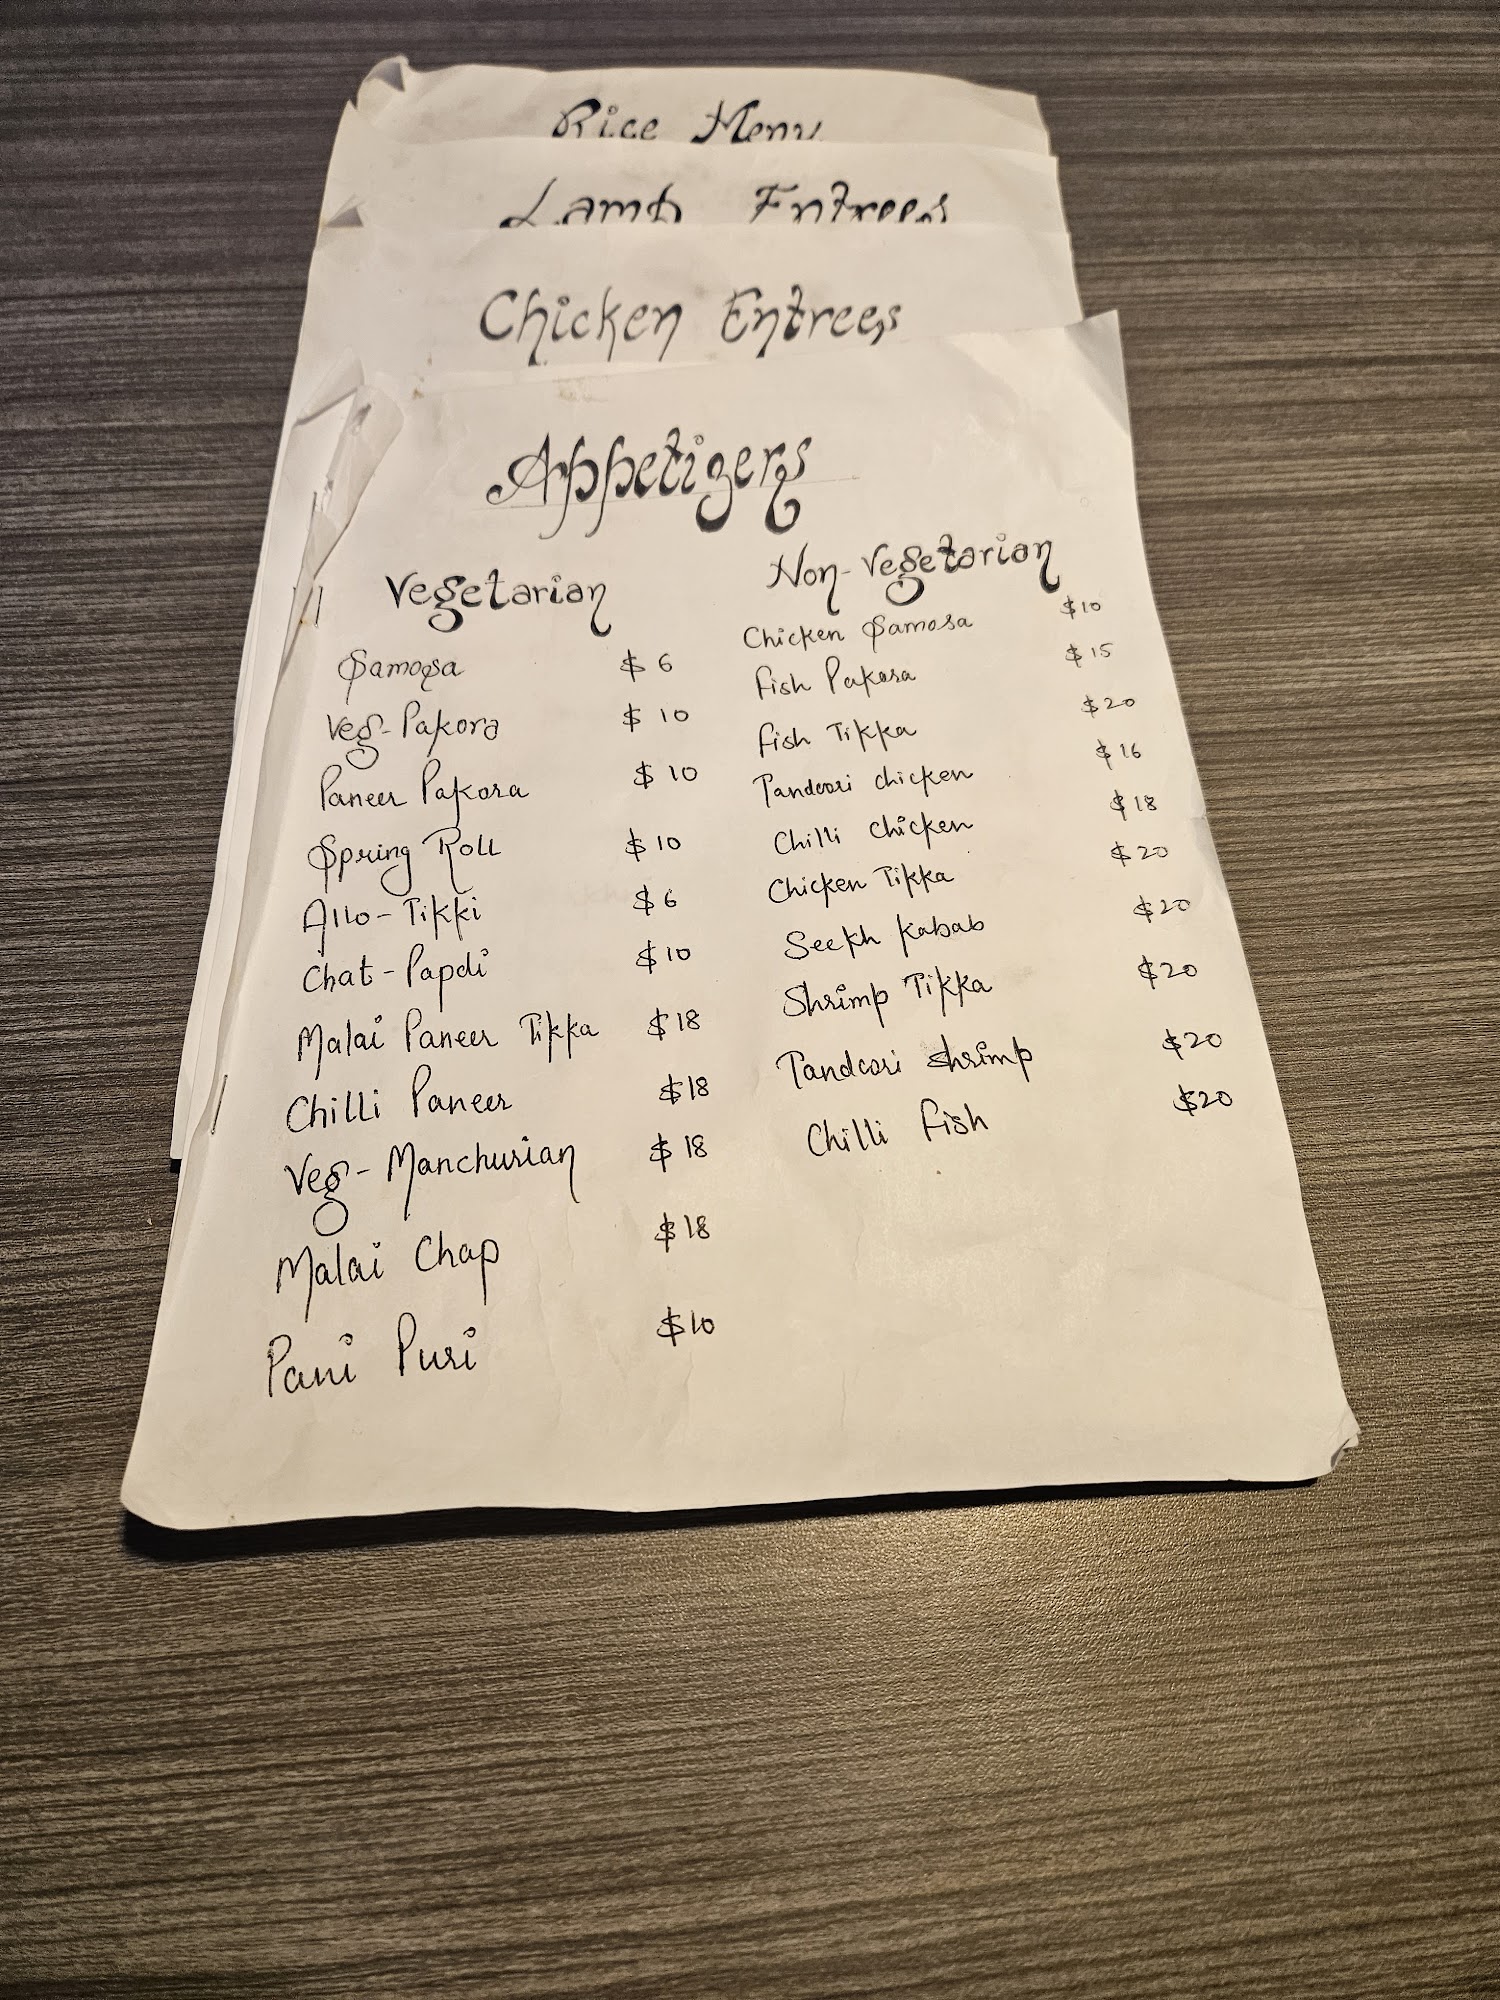 Rice Menu
Lamb Entrees
Chicken Entrees
Appetizers
Vegetarian
Samosa $6
Veg-Pakora $10
Paneer Pakora $10
Spring Roll $10
Allo-Tikki $6
Chat-Papdi $10
Malai Paneer Tikka $18
Chilli Paneer $18
Veg-Manchurian $18
Malai Chap $18
Pani Puri $10
Non-Vegetarian
Chicken Samosa $10
Fish Pakora $15
Fish Tikka $20
Tandoori chicken $16
Chilli chicken $18
Chicken Tikka $20
Seekh Kabab $20
Shrimp Tikka $20
Tandoori shrimp $20
Chilli Fish $20